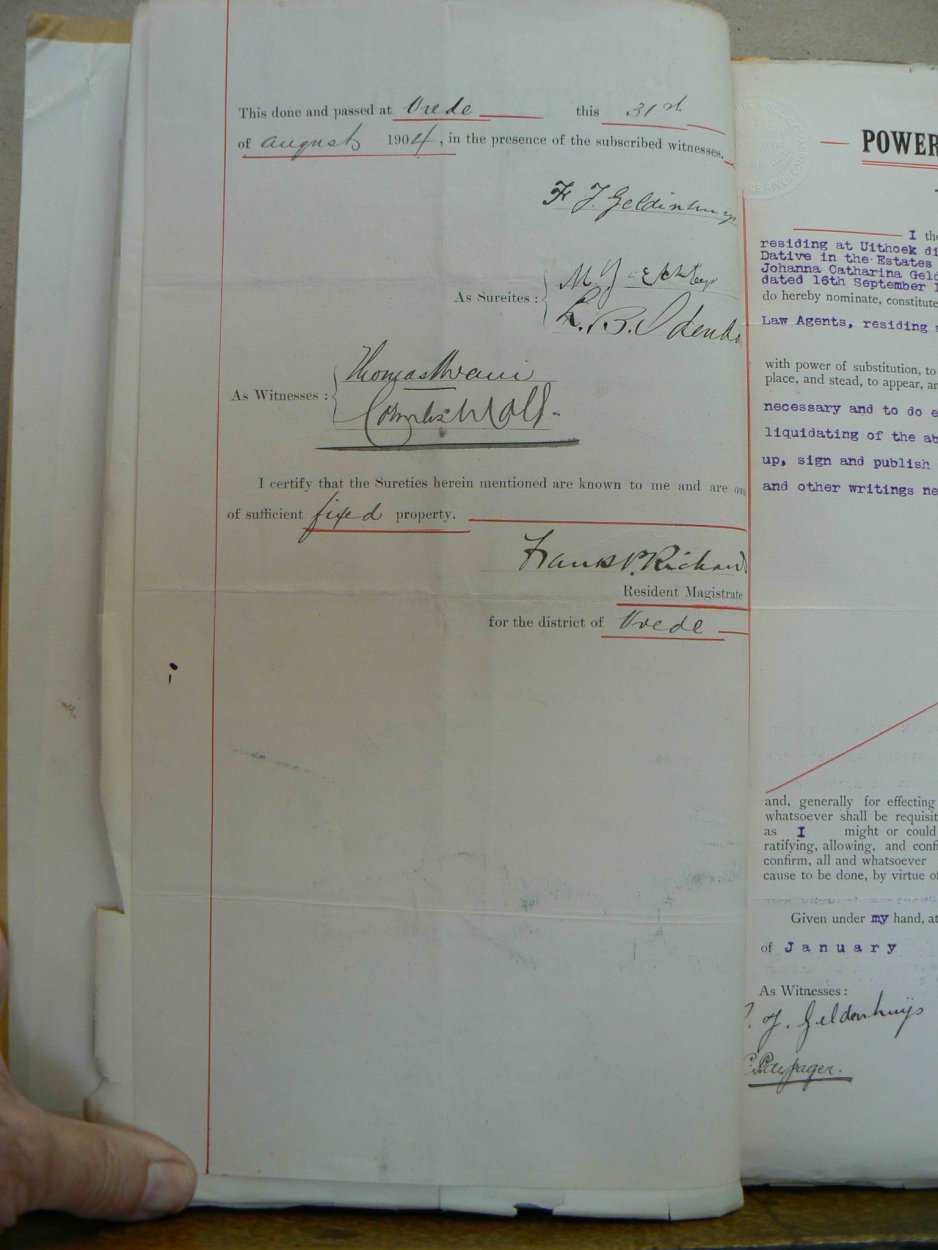 This done and passed at Vrede this 31st
of August 1904, in the presence of the subscribed witnesses.
F J Geldenhuys
As Sureites :
As Witnesses :
Thomas
I certify that the Sureties herein mentioned are known to me and are
of sufficient fixed property.
Resident Magistrate
for the district of Vrede
POWER
I the
residing at Uithoek di
Dative in the Estates
Johanna Catharina Geld
dated 16th September 1
do hereby nominate, constitute
Law Agents, residing
with power of substitution, to
place, and stead, to appear, an
necessary and to do e
liquidating of the ab
up, sign and publish
and other writings ne
and, generally for effecting
whatsoever shall be requisit
as I might or could
ratifying, allowing, and confi
confirm, all and whatsoever
cause to be done, by virtue of
Given under my hand, at
of January
As Witnesses :
J. Geldenhuijs